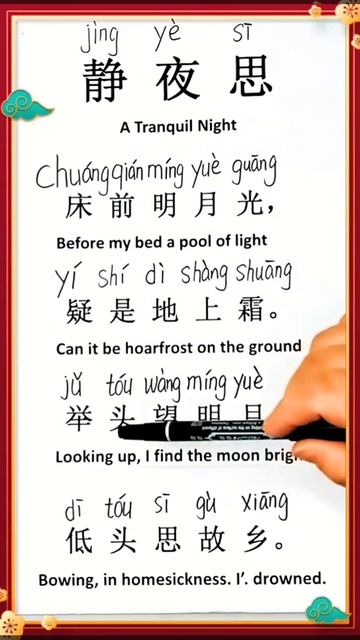 jìng yè sī
静夜思
A Tranquil Night
chuáng qián míng yuè guāng
床前明月光，
Before my bed a pool of light
yí shí dì shàng shuāng
疑是地上霜。
Can it be hoarfrost on the ground
jǔ tóu wàng míng yuè
举头望明月
Looking up, I find the moon brig
dī tóu sī gù xiāng
低头思故乡。
Bowing, in homesickness. I'. drowned.